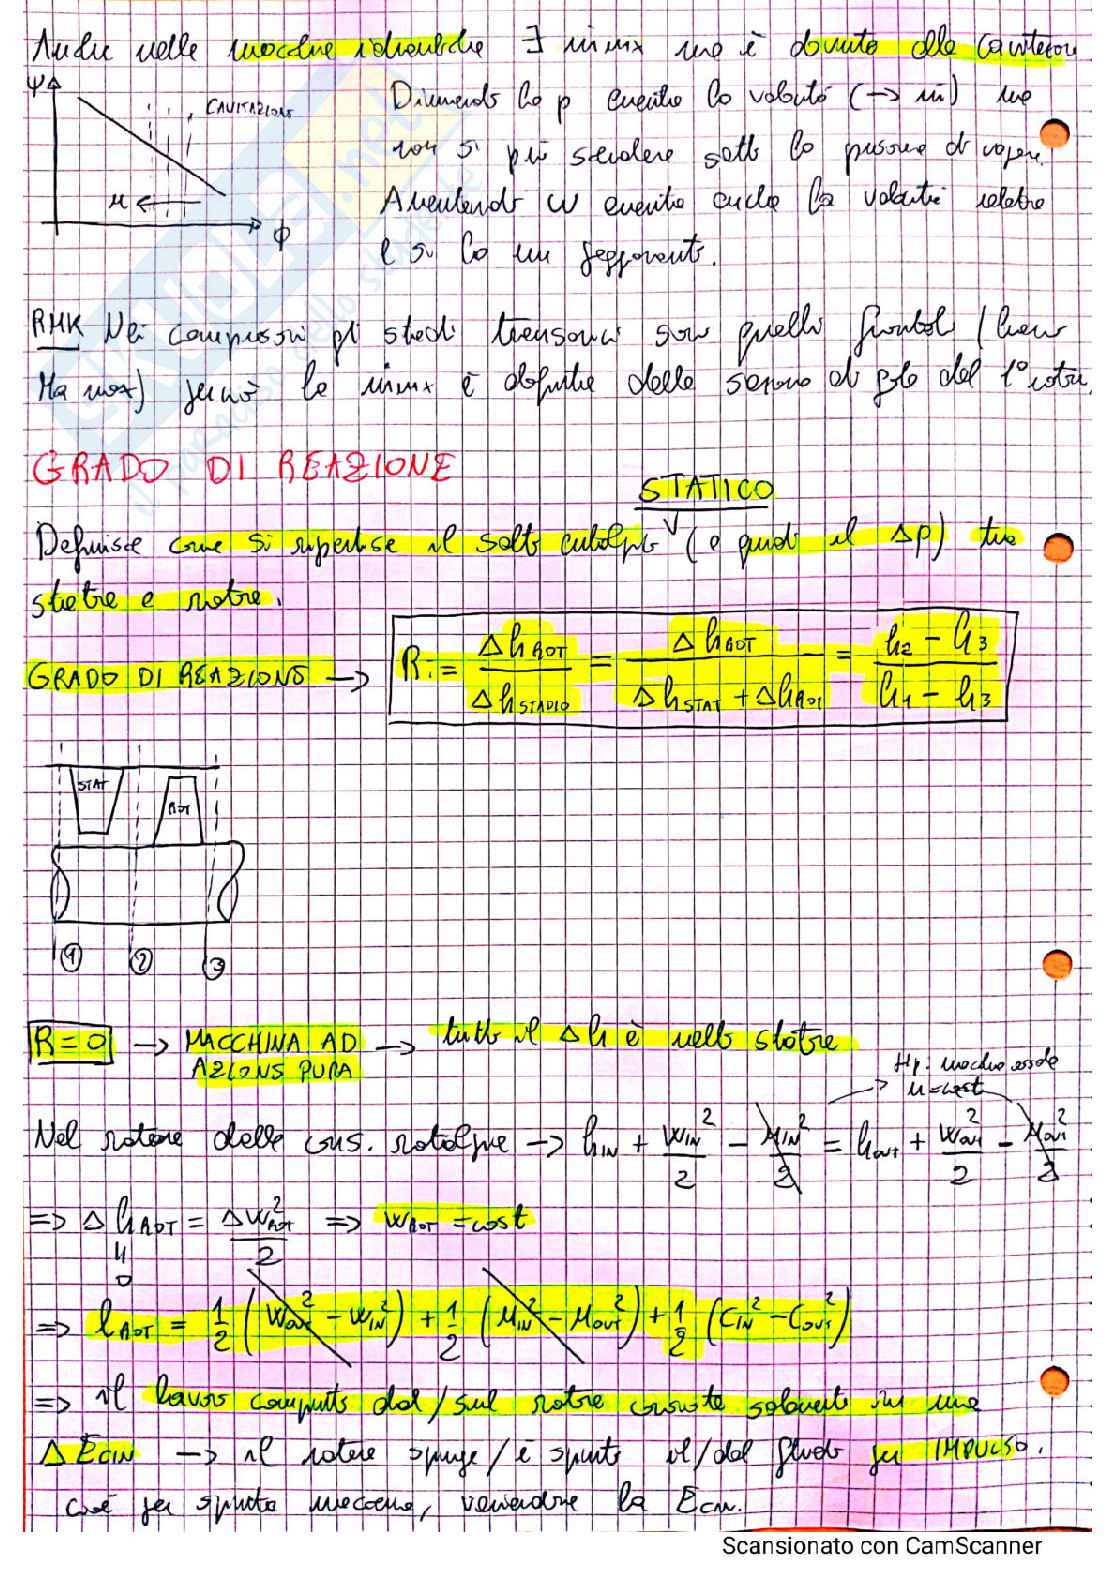 Anche nelle macchine idrauliche ∃ ṁmax ma è dovuto alla cavitazione
ψ
CAVITAZIONE
Diminuendo la p aumenta la velocità (→ ṁ) ma
non si può scendere sotto la pressione di vapore.
u ←
Aumentando ω aumenta anche la velocità relativa
φ
e si ha un peggioramento.
RMK Nei compressori gli stadi transonici sono quelli frontali (hanno
Ma max) perciò la ṁmax è definita dalla sezione di gola del 1° rotore.
GRADO DI REAZIONE
STATICO
Definisce come si ripartisce il salto entalpico (e quindi il Δp) tra
statore e rotore.
GRADO DI REAZIONE → R := Δh ROT / Δh STADIO = Δh ROT / Δh STAT + Δh ROT = h2 - h3 / h1 - h3
STAT
ROT
1 2 3
R = 0 → MACCHINA AD AZIONE PURA → tutto il Δh è nello statore
Hp: macchina assiale
u = cost
Nel rotore dalla cons. rotalpia → h IN + w IN²/2 - u IN²/2 = h out + w out²/2 - u out²/2
=> Δh ROT = Δw²ROT / 2 => w ROT = cost
"
0
=> l ROT = 1/2 (w out² - w IN²) + 1/2 (u IN² - u out²) + 1/2 (C IN² - C out²)
=> il lavoro compiuto dal/sul rotore consiste solamente in una
Δ E CIN → il rotore spinge/è spinto il/dal fluido per IMPULSO.
cioè per spinta meccanica, variandone la E CIN.
Scansionato con CamScanner